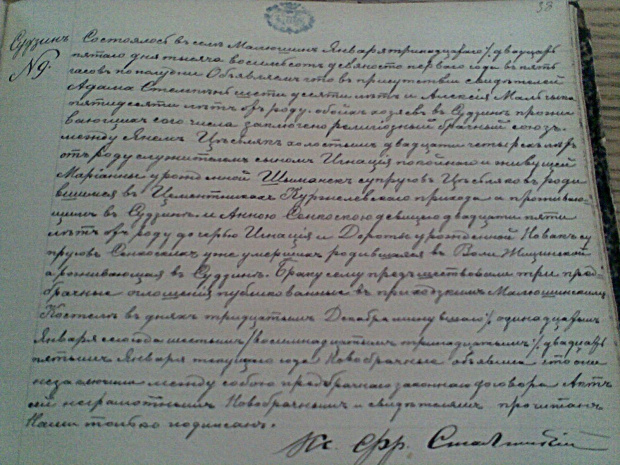 38
Судзинъ
№ 9.
Состоялось въ селѣ Малюшинѣ Января тринадцатаго / двадцать
пятаго дня тысяча восемьсотъ девяносто перваго года въ пять
часовъ по полудни. Объявляемъ что въ присутствіи свидѣтелей
Адама шести десяти лѣтъ и Алексѣя
пятидесяти лѣтъ отъ роду обоихъ хозяевъ въ Судзинѣ прожи
вающихъ сего числа заключено религіозный брачный союзъ
между Яномъ холостымъ двадцати четырехъ лѣтъ
отъ роду служителемъ сыномъ Игнація покойнаго и живущей
Маріанны урожденной супруговъ роди
вшимся въ прихода а прожива
ющимъ въ Судзинѣ и Анною девицею двадцати пяти
лѣтъ отъ роду дочерью Игнація и Дороты урожденной Новакъ су
пруговъ уже умершихъ родившеюся въ Воли
а проживающая въ Судзинѣ. Браку сему предшествовали три пред
брачные оглашенія публикованные въ приходскимъ Малюшинскимъ
Костелѣ въ дняхъ тридцатымъ Декабря минувшаго / одинадцатымъ
Января шестымъ / восемнадцатымъ тринадцатымъ / двадцать
пятымъ Января текущаго года Новобрачные объявили что они
не заключили между собою предбрачнаго законнаго договора Актъ
сей неграмотнымъ Новобрачнымъ и свидѣтелямъ прочитанъ
Нами только подписанъ.
Кс. Фр.